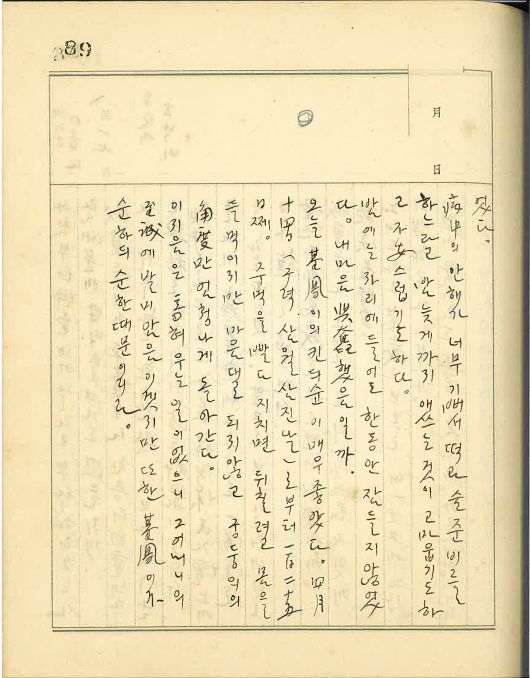 89
月 日
었다.
病中의 안해가 너무 기뻐서 떡과 술 준비를
하느라고 밤늦게까지 애쓰는 것이 고마웁기도 하
고 스럽기도하다.
밤에는 자리에 들어도 한동안 잠들지 않었
다. 내맘은 興奮했음일까.
오늘 基鳳이의 매우좋았다. 四月
十四日 (구력 삼월 삼진날)로부터 一百二十五
日째. 주먹을 빨다 지치면 뒤칠려 몸을
들먹이지만 마음대로 되지않고 궁둥이의
角度만 엄청나게 돌아간다.
이지음은 통혀 우는 일이 없으니 그어머니의
至誠에 말미암음이겠지만 또한 基鳳이가
순하듸 순한때문이리라.